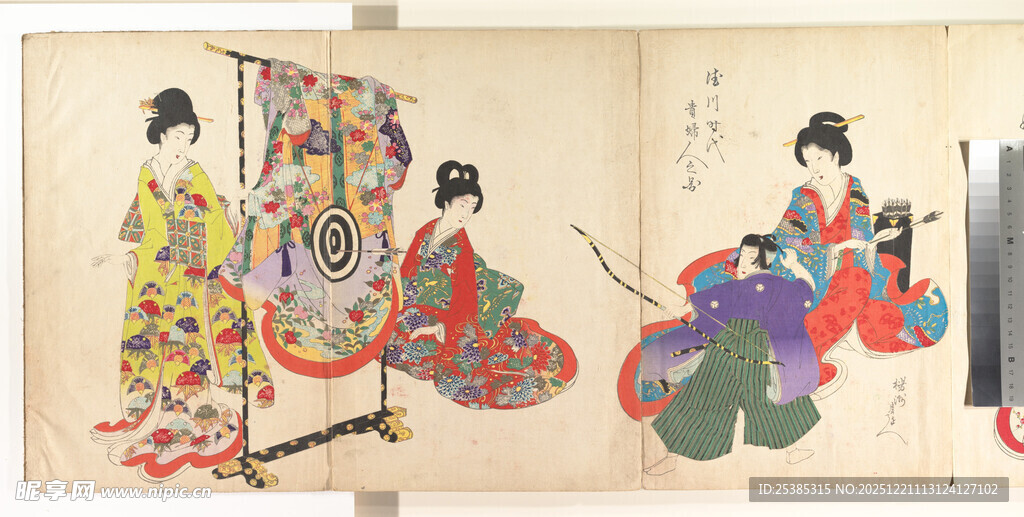 徳川時代
貴婦人之図
楊洲周延
昵享网 www.nipic.cn
ID:25385315 NO:20251221113124127102